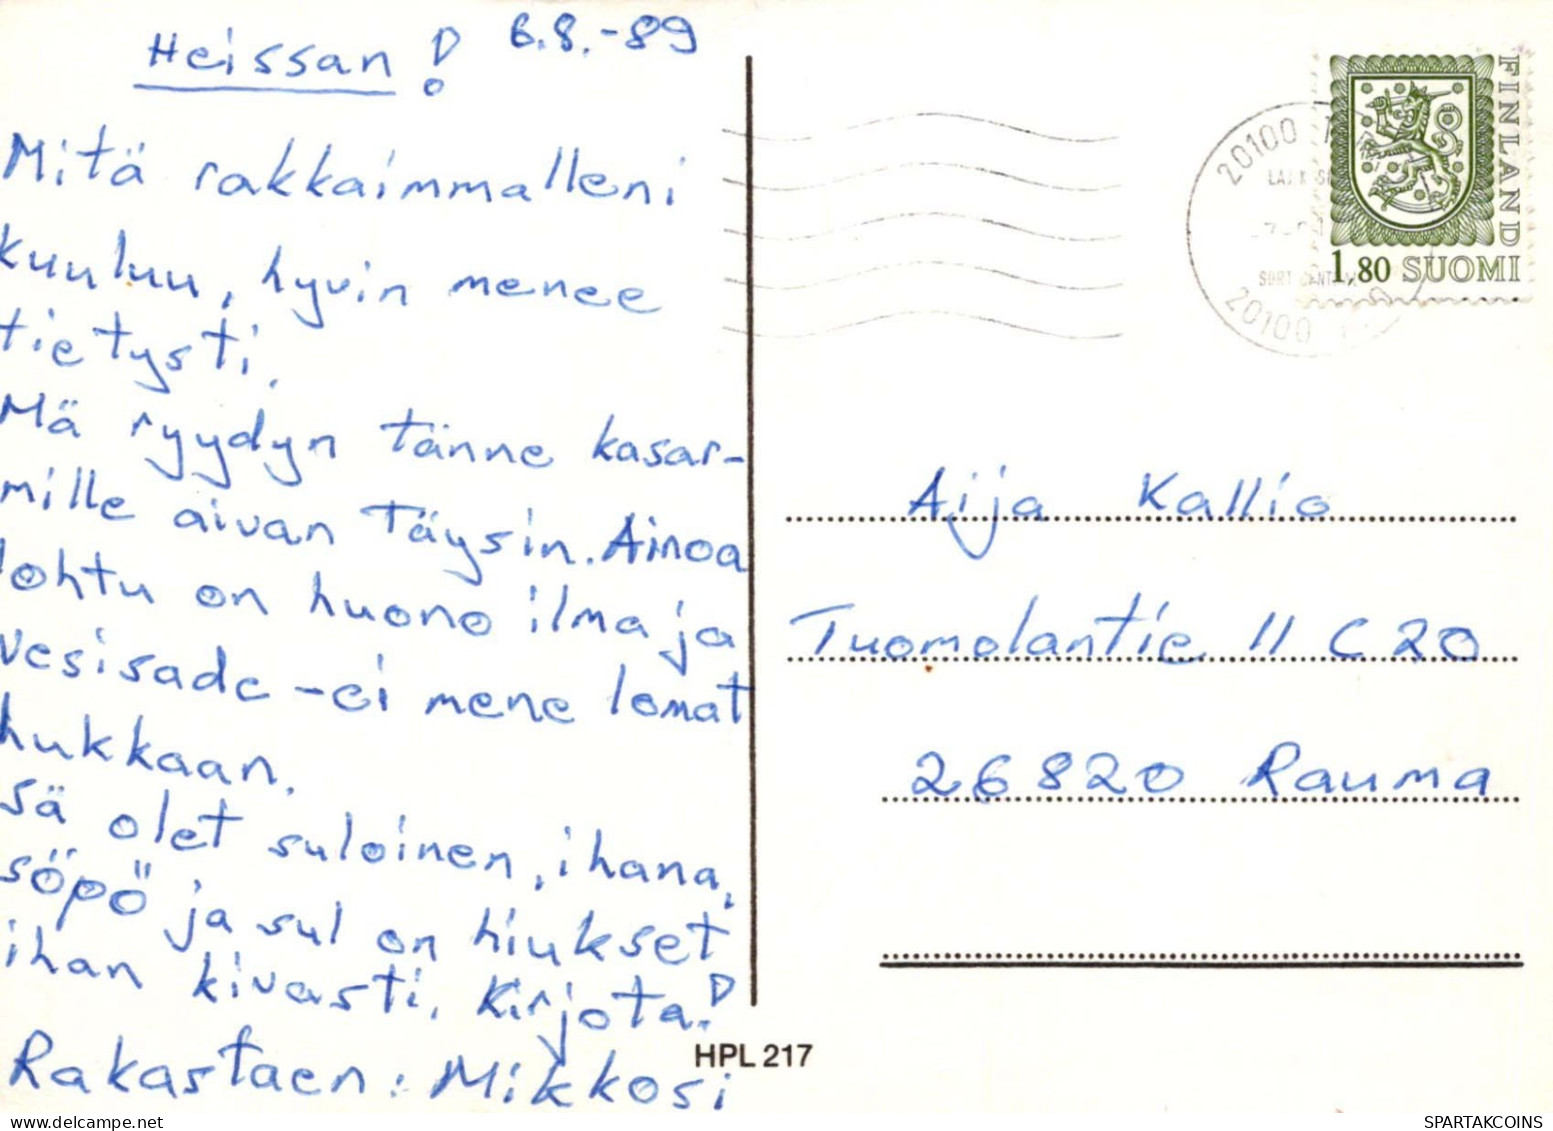 Heissan! 6.8.-89
Mitä rakkaimmalleni
kuuluu, hyvin menee
tietysti.
Mä ryydyn tänne kasar-
mille aivan täysin. Ainoa
lohtu on huono ilma ja
vesisade - ei mene lomat
hukkaan.
sä olet suloinen, ihana,
söpö ja sul on hiukset
ihan kivasti. Kirjota!
Rakastaen: Mikkosi
HPL 217
20100
20100
FINLAND
1,80 SUOMI
Aija Kallio
Tuomolantie 11 C 20
26820 Rauma
delcampe.net
SPARTAKCOINS